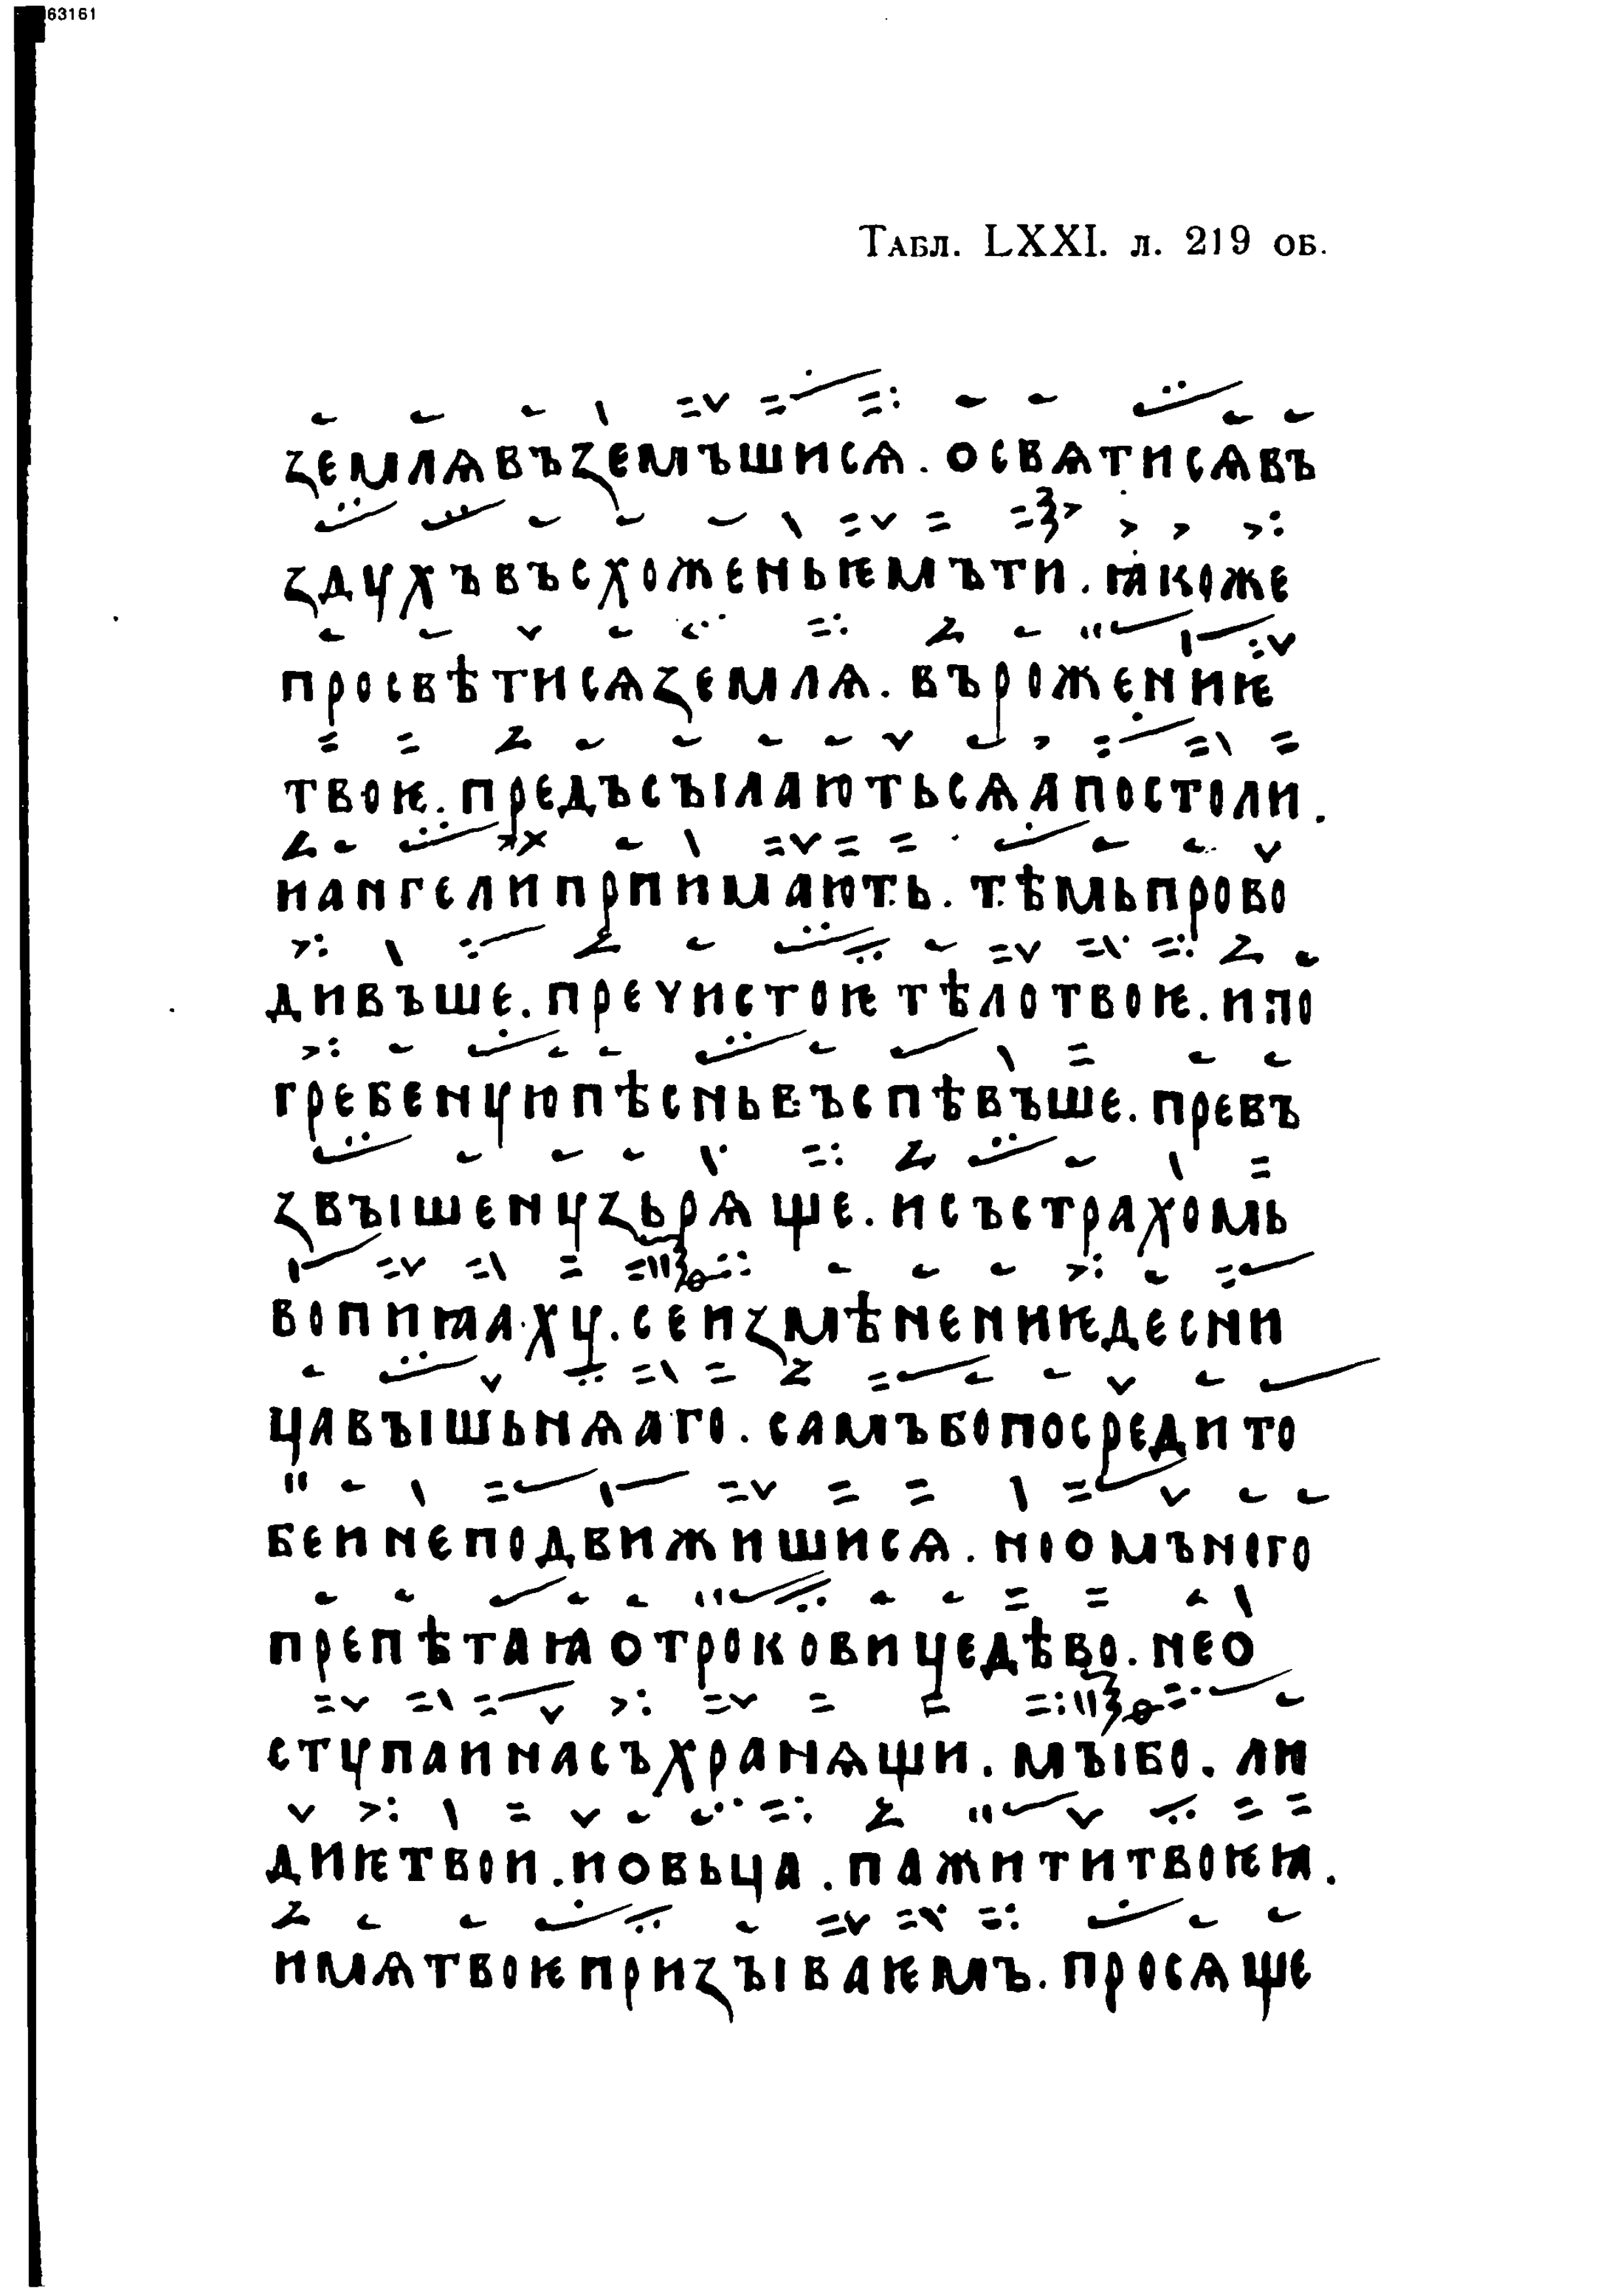 63161
Табл. LXXI. л. 219 об.
ꙁемлѧвъꙁемъшисѧ. освѧтисѧвъ
ꙁдꙋхъвъсхоженьѥмъти. ꙗкоже
просвѣтисѧꙁемлѧ. въроженнѥ
твоѥ. предъсъıлаютьсѧапостоли.
иангелиприимають. тѣмьпрово
дивъше. пречистоѥтѣлотвоѥ. ипо
гребенꙋюпѣсньвъспѣвъше. превъ
ꙁвъıшенꙋꙁьрѧще. исъстрахомь
вопиꙗхꙋ. сеиꙁмѣнениѥдесни
цавъıшьнѧаго. самъбопосредито
беинеподвижишисѧ. нюомъного
препѣтаꙗотроковицедѣво. нео
стꙋпаинасъхранѧщи. мъıбо. лю
диѥтвои. иовьца. пажититвоѥꙗ.
имѧтвоѥприꙁъıваѥмъ. просѧще